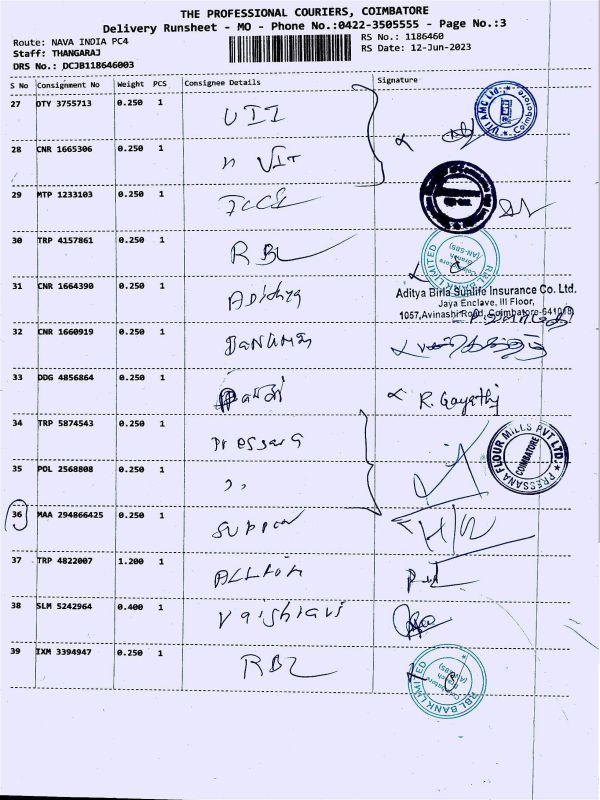 THE PROFESSIONAL COURIERS, COIMBATORE
Delivery Runsheet - MO - Phone No.:0422-3505555 - Page No.:3
Route: NAVA INDIA PC4
Staff: THANGARAJ
DRS No.: DCJB118646003
RS No.: 1186460
RS Date: 12-Jun-2023
S No Consignment No Weight PCS Consignee Details Signature
27 OTY 3755713 0.250 1 UTI
UTI AMC Ltd. Coimbatore
28 CNR 1665306 0.250 1
29 MTP 1233103 0.250 1
30 TRP 4157861 0.250 1 RBL
RBL BANK LIMITED Coimbatore Branch (AN-585)
31 CNR 1664390 0.250 1 Adithya
Aditya Birla Sunlife Insurance Co. Ltd.
Jaya Enclave, III Floor,
1057,Avinashi Road, Coimbatore-641018
32 CNR 1660919 0.250 1 Banurna
33 DDG 4856864 0.250 1 R. Gayathj
34 TRP 5874543 0.250 1 Pressana
PRESSANA FLOUR MILLS PVT LTD. COIMBATORE
35 POL 2568808 0.250 1 ,,
36 MAA 294866425 0.250 1 Suppor
37 TRP 4822007 1.200 1
38 SLM 5242964 0.400 1 Vaishnavi
39 IXM 3394947 0.250 1 RBL
RBL BANK LIMITED Coimbatore Branch (AN-585)